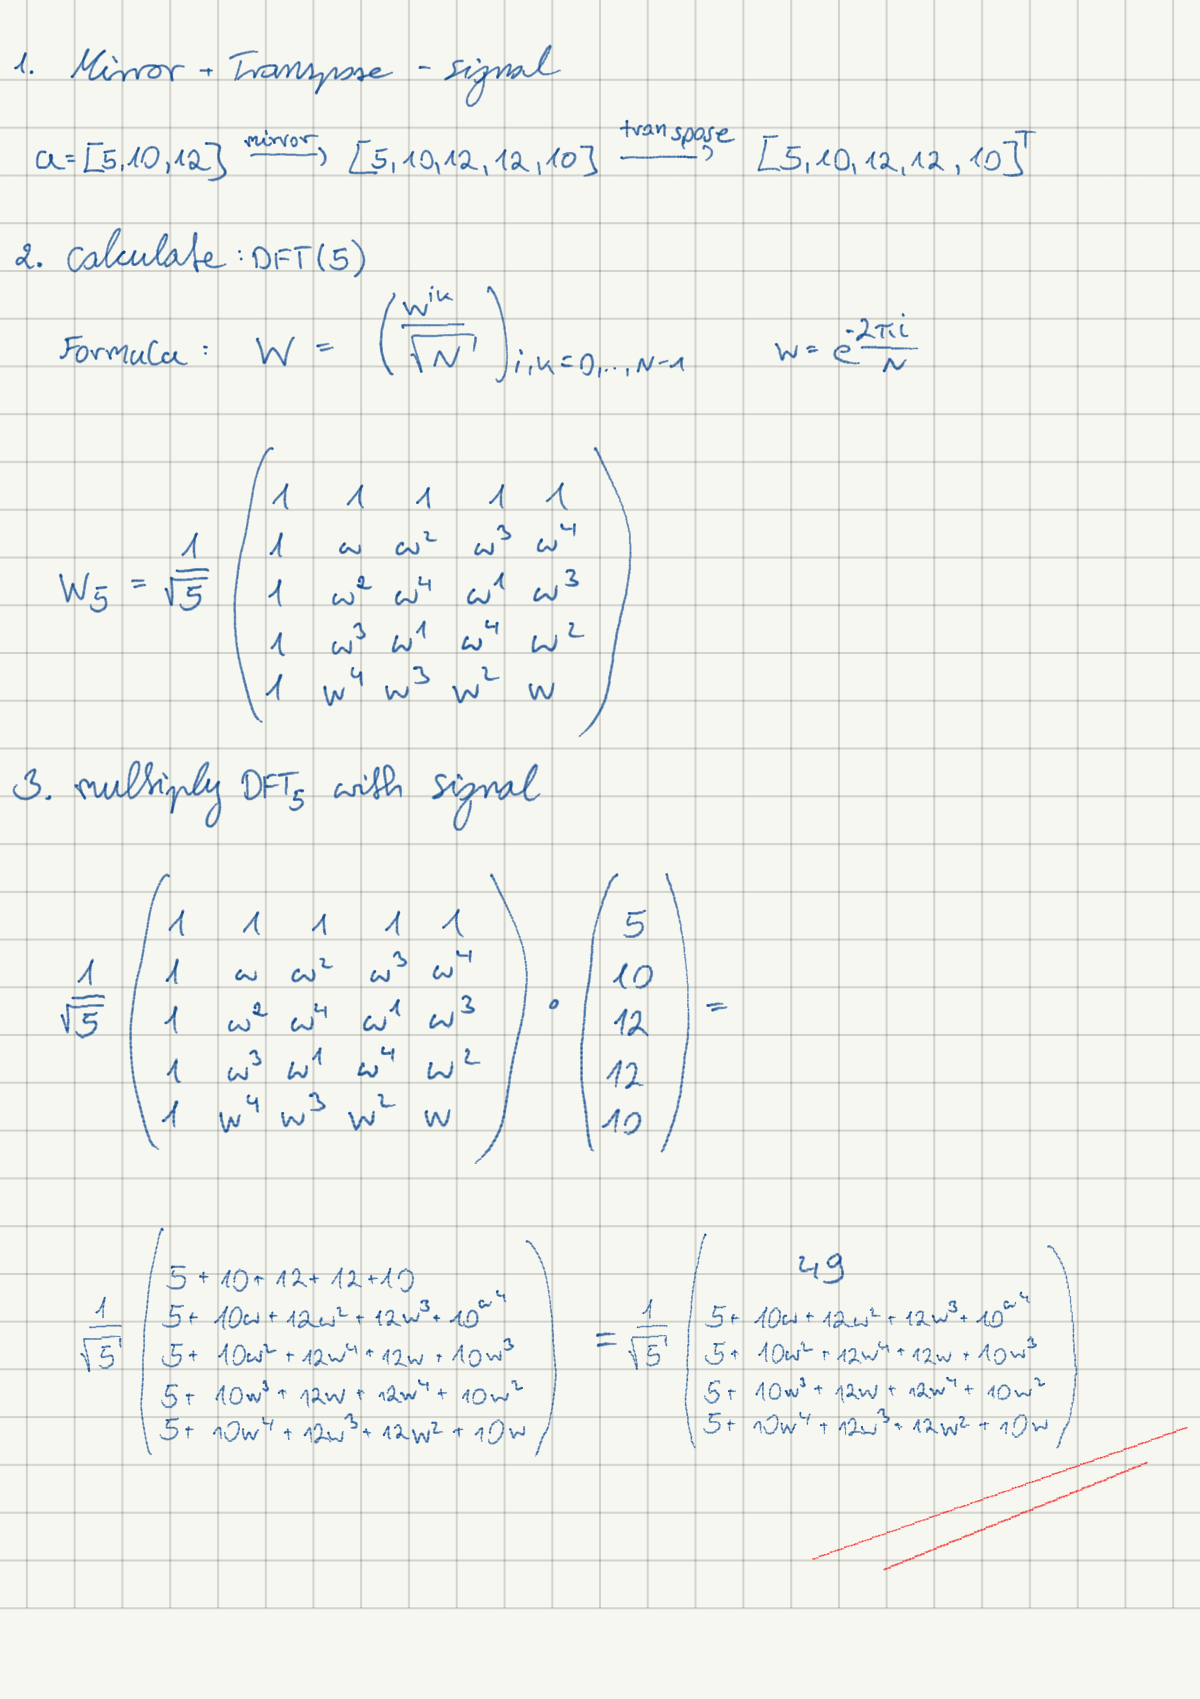 1. Mirror + Transpose - signal
a=[5,10,12] mirror→ [5,10,12,12,10] transpose→ [5,10,12,12,10]ᵀ
2. calculate : DFT(5)
Formula : W = (w^ik / √N) i,k=0,..,N-1 w = e^(-2πi / N)
W₅ = 1/√5
1 1 1 1 1
1 ω ω² ω³ ω⁴
1 ω² ω⁴ ω¹ ω³
1 ω³ ω¹ ω⁴ ω²
1 w⁴ w³ w² w
3. multiply DFT₅ with signal
1/√5
1 1 1 1 1
1 ω ω² ω³ ω⁴
1 ω² ω⁴ ω¹ ω³
1 ω³ ω¹ ω⁴ ω²
1 w⁴ w³ w² w
•
5
10
12
12
10
=
1/√5
5 + 10 + 12 + 12 + 10
5+ 10ω + 12ω² + 12w³ + 10^ω⁴
5+ 10ω² + 12w⁴ + 12w + 10w³
5+ 10w³ + 12w + 12w⁴ + 10w²
5+ 10w⁴ + 12w³ + 12w² + 10w
= 1/√5
49
5+ 10ω + 12ω² + 12w³ + 10^ω⁴
5+ 10ω² + 12w⁴ + 12w + 10w³
5+ 10w³ + 12w + 12w⁴ + 10w²
5+ 10w⁴ + 12w³ + 12w² + 10w